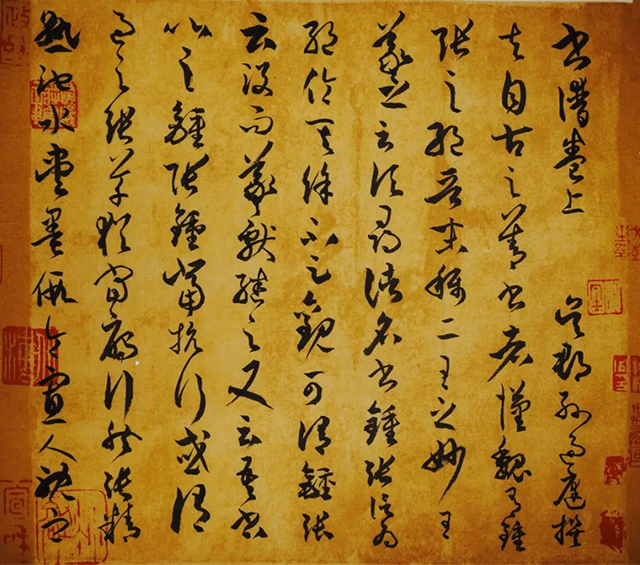 書譜卷上 吳郡孫過庭撰
夫自古之善書者漢魏有鍾
張之絕晉末稱二王之妙王
羲之云頃尋諸名書鍾張信為
絕倫其餘不足觀可謂鍾張
云沒而羲獻繼之又云吾書
比之鍾張鍾當抗行或謂
過之張草猶當雁行然張精
熟池水盡墨假令寡人耽之